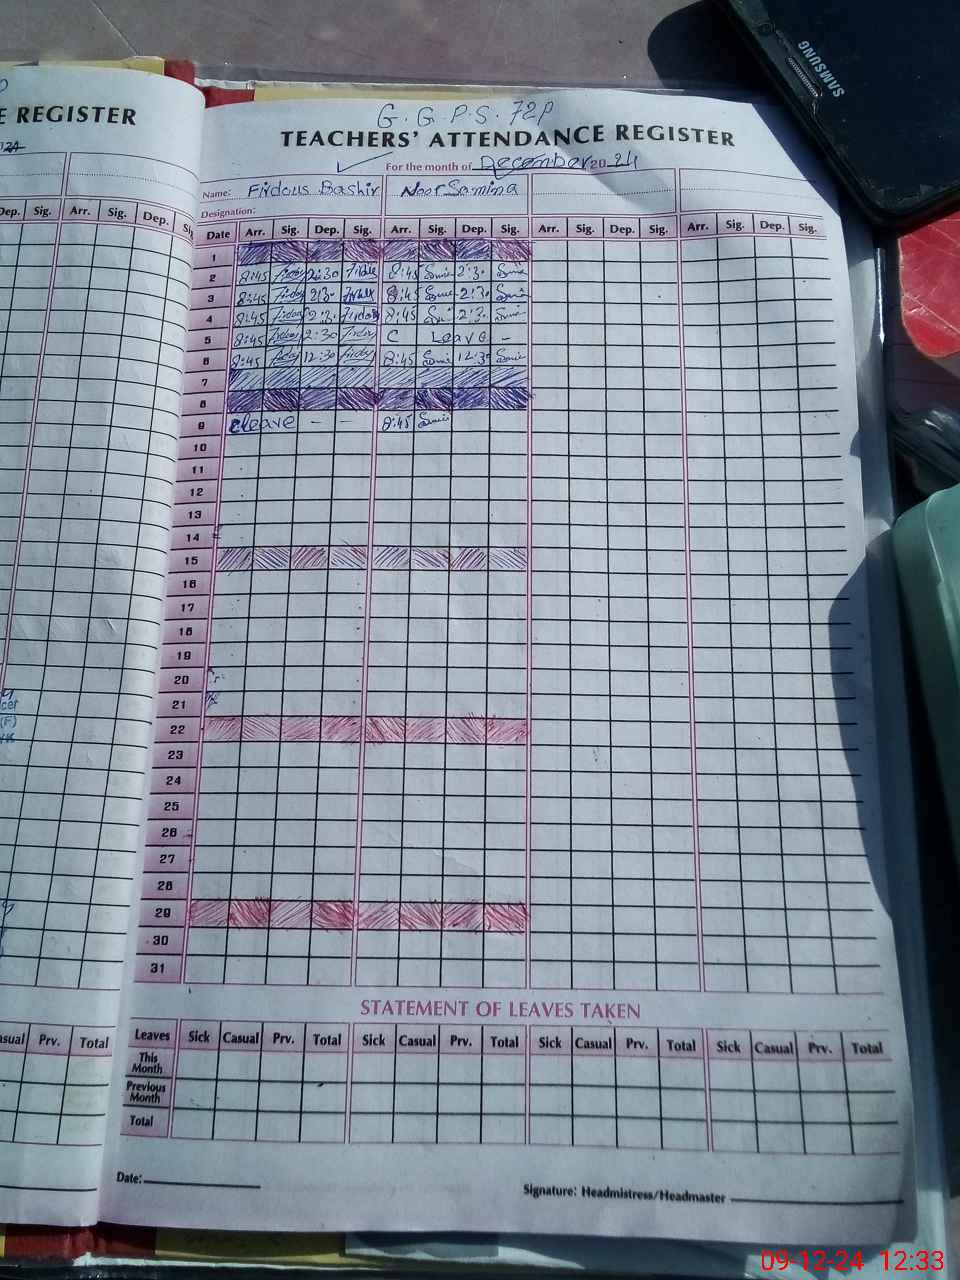 SAMSUNG
E REGISTER
G.G.P.S. 72P
TEACHERS' ATTENDANCE REGISTER
For the month of December 2024
Name: Firdous Bashir Noor Samina
Designation:
Dep. Sig. Arr. Sig. Dep. Sig
Date Arr. Sig. Dep. Sig. Arr. Sig. Dep. Sig. Arr. Sig. Dep. Sig. Arr. Sig. Dep. Sig.
1
2 8:45 2:30 8:45 2:30
3 8:45 230 8:45 2:30
4 8:45 2:30 8:45 2:30
5 8:45 2:30 C Leave -
6 8:45 12:30 8:45 12:30
7
8
9 cleave - - 8:45
10
11
12
13
14
15
16
17
18
19
20
21
22
23
24
25
26
27
28
29
30
31
cer
(F)
STATEMENT OF LEAVES TAKEN
asual Prv. Total
Leaves Sick Casual Prv. Total Sick Casual Prv. Total Sick Casual Prv. Total Sick Casual Prv. Total
This Month
Previous Month
Total
Date:
Signature: Headmistress/Headmaster
09-12-24 12:33